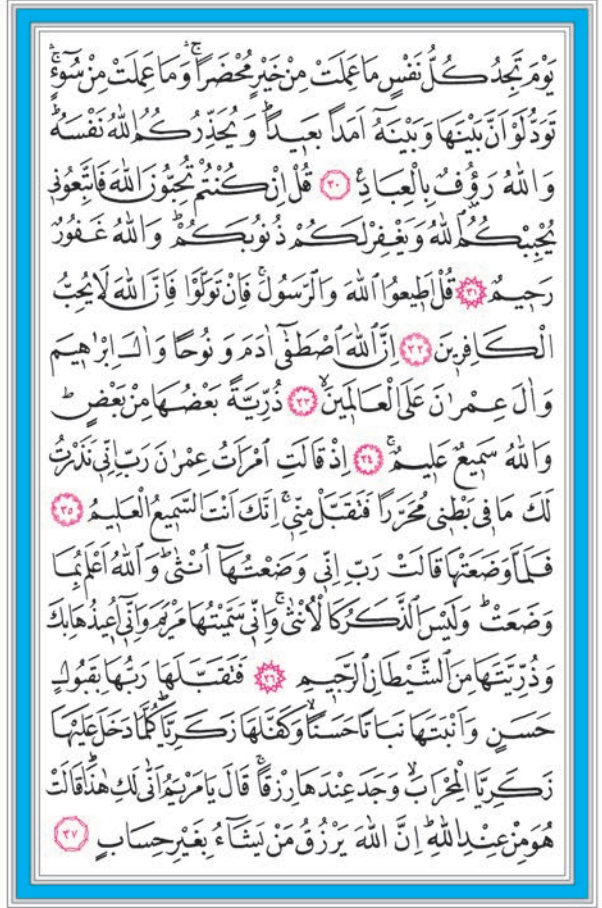 يَوْمَ تَجِدُ كُلُّ نَفْسٍ مَا عَمِلَتْ مِنْ خَيْرٍ مُحْضَرًاۚۛ وَمَا عَمِلَتْ مِنْ سُٓوءٍۚۛ
تَوَدُّ لَوْ اَنَّ بَيْنَهَا وَبَيْنَهُٓ اَمَدًا بَعِيدًاۜ وَيُحَذِّرُكُمُ اللّٰهُ نَفْسَهُۜ
وَاللّٰهُ رَؤُفٌ بِالْعِبَادِ۟ ﴿٣٠﴾ قُلْ اِنْ كُنْتُمْ تُحِبُّونَ اللّٰهَ فَاتَّبِعُونِي
يُحْبِبْكُمُ اللّٰهُ وَيَغْفِرْ لَكُمْ ذُنُوبَكُمْۜ وَاللّٰهُ غَفُورٌ
رَحِيمٌ ﴿٣١﴾ قُلْ اَطِيعُوا اللّٰهَ وَالرَّسُولَۚ فَاِنْ تَوَلَّوْا فَاِنَّ اللّٰهَ لَا يُحِبُّ
الْكَافِرِينَ ﴿٣٢﴾ اِنَّ اللّٰهَ اصْطَفٰٓى اٰدَمَ وَنُوحًا وَاٰلَ اِبْرٰهِيمَ
وَاٰلَ عِمْرٰنَ عَلَى الْعَالَمِينَۙ ﴿٣٣﴾ ذُرِّيَّةً بَعْضُهَا مِنْ بَعْضٍۜ
وَاللّٰهُ سَمِيعٌ عَلِيمٌۚ ﴿٣٤﴾ اِذْ قَالَتِ امْرَاَتُ عِمْرٰنَ رَبِّ اِنِّي نَذَرْتُ
لَكَ مَا فِي بَطْنِي مُحَرَّرًا فَتَقَبَّلْ مِنِّيۚ اِنَّكَ اَنْتَ السَّمِيعُ الْعَلِيمُ ﴿٣٥﴾
فَلَمَّا وَضَعَتْهَا قَالَتْ رَبِّ اِنِّي وَضَعْتُهَٓا اُنْثٰىۜ وَاللّٰهُ اَعْلَمُ بِمَا
وَضَعَتْۜ وَلَيْسَ الذَّكَرُ كَالْاُنْثٰىۚ وَاِنِّي سَمَّيْتُهَا مَرْيَمَ وَاِنِّٓي اُعِيذُهَا بِكَ
وَذُرِّيَّتَهَا مِنَ الشَّيْطَانِ الرَّجِيمِ ﴿٣٦﴾ فَتَقَبَّلَهَا رَبُّهَا بِقَبُولٍ
حَسَنٍ وَاَنْبَتَهَا نَبَاتًا حَسَنًاۙ وَكَفَّلَهَا زَكَرِيَّاۜ كُلَّمَا دَخَلَ عَلَيْهَا
زَكَرِيَّا الْمِحْرَابَۙ وَجَدَ عِنْدَهَا رِزْقًاۚ قَالَ يَا مَرْيَمُ اَنّٰى لَكِ هٰذَاۜ قَالَتْ
هُوَ مِنْ عِنْدِ اللّٰهِۜ اِنَّ اللّٰهَ يَرْزُقُ مَنْ يَشَٓاءُ بِغَيْرِ حِسَابٍ ﴿٣٧﴾